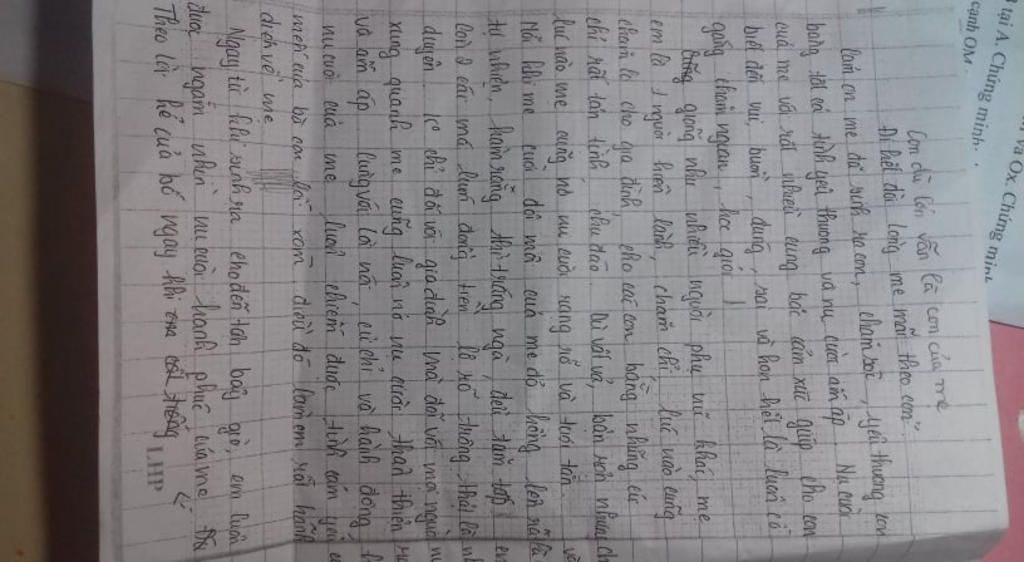 tại A. Chứng minh.
và Ox. Chứng minh
cạnh OM.
Con dù lớn vẫn là con của mẹ
Đi hết đời lòng mẹ vẫn theo con".
Cảm ơn mẹ đã sinh ra em, chăm sóc, yêu thương em
bằng tất cả tình yêu thương và nụ cười ấm áp. Nụ cười
của mẹ với rất nhiều cung bậc cảm xúc giúp cho em
biết đến vui, buồn, đúng, sai và hơn hết là luôn cố
gắng chăm ngoan, học giỏi!
giống như nhiều người phụ nữ khác, mẹ
em là 1 người hiền lành, chăm chỉ lúc nào cũng
chăm lo cho gia đình, cho các con bằng những cử
chỉ rất tận tình, chu đáo. Dù vất vả, bận rộn nhưng
lúc nào mẹ cũng nở nụ cười rạng rỡ và tươi tắn.
Mỗi khi mẹ cười đôi môi của mẹ đỏ hồng lên rất là
tự nhiên, hàm răng thì thẳng, ngà, đều tăm tắp
còn 2 cái má lúm đồng tiền lộ rõ trông thật là
duyên. K chỉ đối với gia đình mà đối với mọi người
xung quanh mẹ cũng luôn nở nụ cười thân thiện
và ấm áp cùng với lời nói, cử chỉ và hành động,
nụ cười của mẹ luôn chiếm được tình cảm yêu
mến của bà con lối xóm, điều đó làm em rất hãnh
diện về mẹ.
Ngay từ khi sinh ra cho đến tận bây giờ, em luôn
được ngắm nhìn nụ cười hạnh phúc của mẹ.
Theo lời kể của bố ngay khi em
LHP